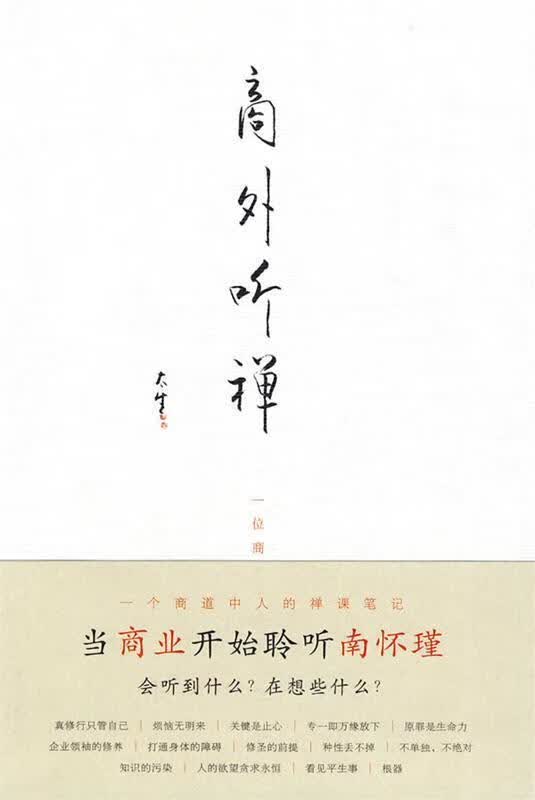 商外听禅
太生
一位商
一个商道中人的禅课笔记
当商业开始聆听南怀瑾
会听到什么？在想些什么？
真修行只管自己 | 烦恼无明来 | 关键是止心 | 专一即万缘放下 | 原罪是生命力
企业领袖的修养 | 打通身体的障碍 | 修圣的前提 | 种性丢不掉 | 不单独，不绝对
知识的污染 | 人的欲望贪求永恒 | 看见平生事 | 根器